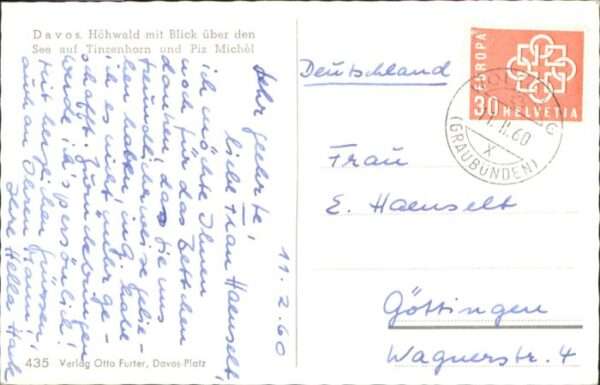 Davos. Höhwald mit Blick über den
See auf Tinzenhorn und Piz Michèl
11.2.60
Sehr geehrte,
liebe Frau Haenselt,
ich möchte Ihnen
noch für das Bettchen
danken, das Sie uns
freundlicherweise gelie-
hen haben, u.g. habe
ich es nicht mehr ge-
schafft. Zurückbringen
werde ich's persönlich!
Mit herzlichen Grüssen,
auch an Ihren Mann,
Ihre Hella
435 Verlag Otto Furter, Davos-Platz
Deutschland
EUROPA
30 HELVETIA
11.II.60
X
(GRAUBÜNDEN)
Frau
E. Haenselt
Göttingen
Wagnerstr. 4